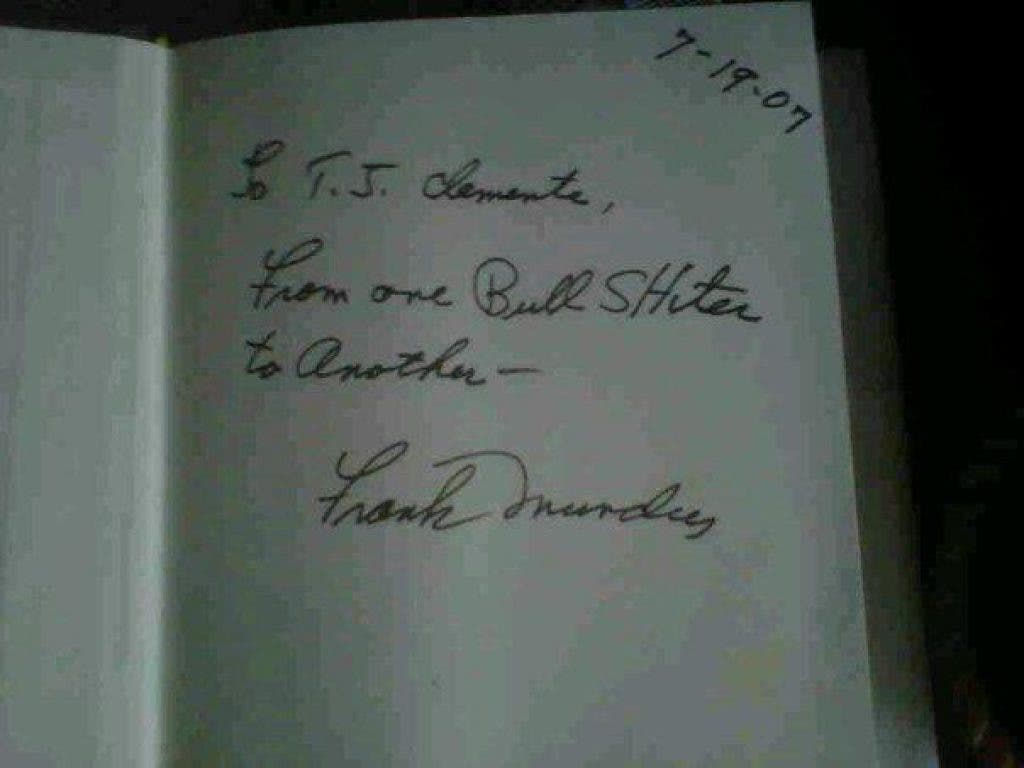 7-19-07
To T.J. Clemente,
From one Bull SHiter
to Another—
Frank Mundus